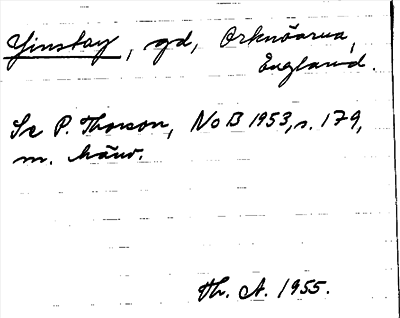 Yinstay, gd, Orknöarna,
England.
Se P. Thorson, NoB 1953, s. 179,
m. hänv.
Th. A. 1955.